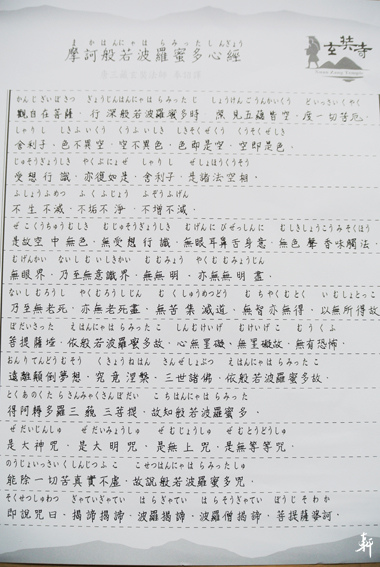 玄奘寺
まかはんにゃはらみったしんぎょう
摩訶般若波羅蜜多心經
かんじざいぼさつ ぎょうじんはんにゃはらみったじ しょうけんごうんかいくう どいっさいくやく
觀自在菩薩，行深般若波羅蜜多時，照見五蘊皆空，度一切苦厄。
しゃりし しきふいくう くうふいしき しきそくぜくう くうそくぜしき
舍利子，色不異空，空不異色，色即是空，空即是色。
じゅそうぎょうしき やくぶにょぜ しゃりし ぜしょほうくうそう
受想行識，亦復如是，舍利子，是諸法空相，
ふしょうふめつ ふくふじょう ふぞうふげん
不生不滅，不垢不淨，不增不減。
ぜこくうちゅうむしき むじゅそうぎょうしき むげんにびぜっしんに むしきしょうこうみそくほう
是故空中無色，無受想行識，無眼耳鼻舌身意，無色聲香味觸法，
むげんかい ないしむいしきかい むむみょう やくむむみょうじん
無眼界，乃至無意識界，無無明，亦無無明盡，
ないしむろうし やくむろうしじん むくしゅうめつどう むちやくむとく いむしょとっこ
乃至無老死，亦無老死盡，無苦集滅道，無智亦無得，以無所得故
ぼだいさった えはんにゃはらみったこ しんむけいげ むけいげこ むうくふ
菩提薩埵，依般若波羅蜜多故，心無罣礙，無罣礙故，無有恐怖，
おんりてんどうむそう くきょうねはん さんぜしょぶつ えはんにゃはらみったこ
遠離顛倒夢想，究竟涅槃，三世諸佛，依般若波羅蜜多故
とくあのくたらさんみゃくさんぼだい こちはんにゃはらみった
得阿耨多羅三藐三菩提，故知般若波羅蜜多，
ぜだいじんしゅ ぜだいみょうしゅ ぜむじょうしゅ ぜむとうどうしゅ
是大神咒，是大明咒，是無上咒，是無等等咒，
のうじょいっさいく しんじつふこ こせつはんにゃはらみったしゅ
能除一切苦真實不虛，故說般若波羅蜜多咒，
そくせつしゅわつ ぎゃていぎゃてい はらぎゃてい はらそうぎゃてい ぼうじそわか
即說咒曰，揭諦揭諦，波羅揭諦，波羅僧揭諦，菩提薩婆訶。